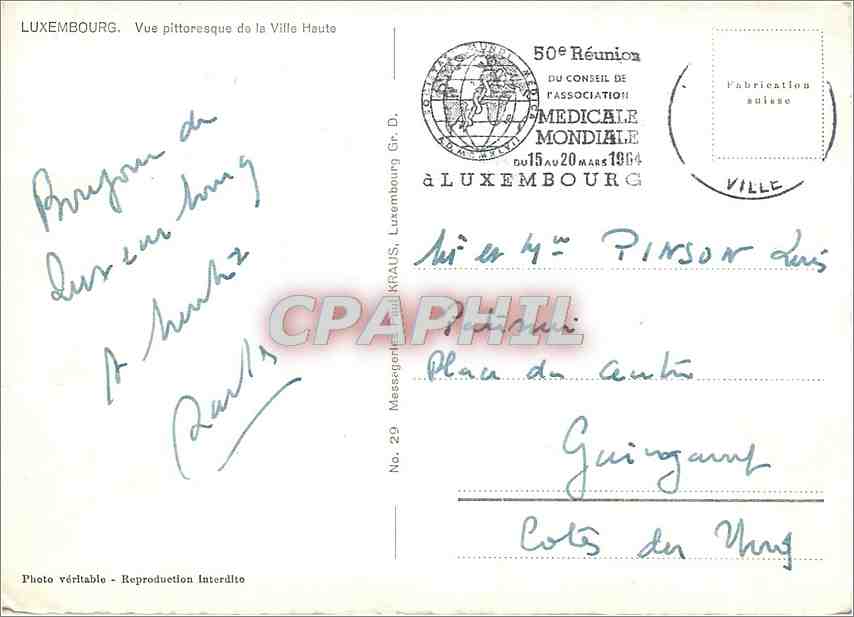 LUXEMBOURG. Vue pittoresque de la Ville Haute
Bonjour du
Luxembourg
A bientôt
SOCIETAS MUNDI MEDICA
A.D. MCMXLVII
50e Réunion
DU CONSEIL DE
l'ASSOCIATION
MEDICALE
MONDIALE
DU 15 AU 20 MARS 1964
à LUXEMBOURG
VILLE
Fabrication
suisse
No. 29 Messageries Paul KRAUS, Luxembourg Gr. D.
Mr et Mme PINSON Louis
Patisserie
Place du Centre
Guingamp
Cotes du Nord
CPAPHIL
Photo véritable - Reproduction Interdite